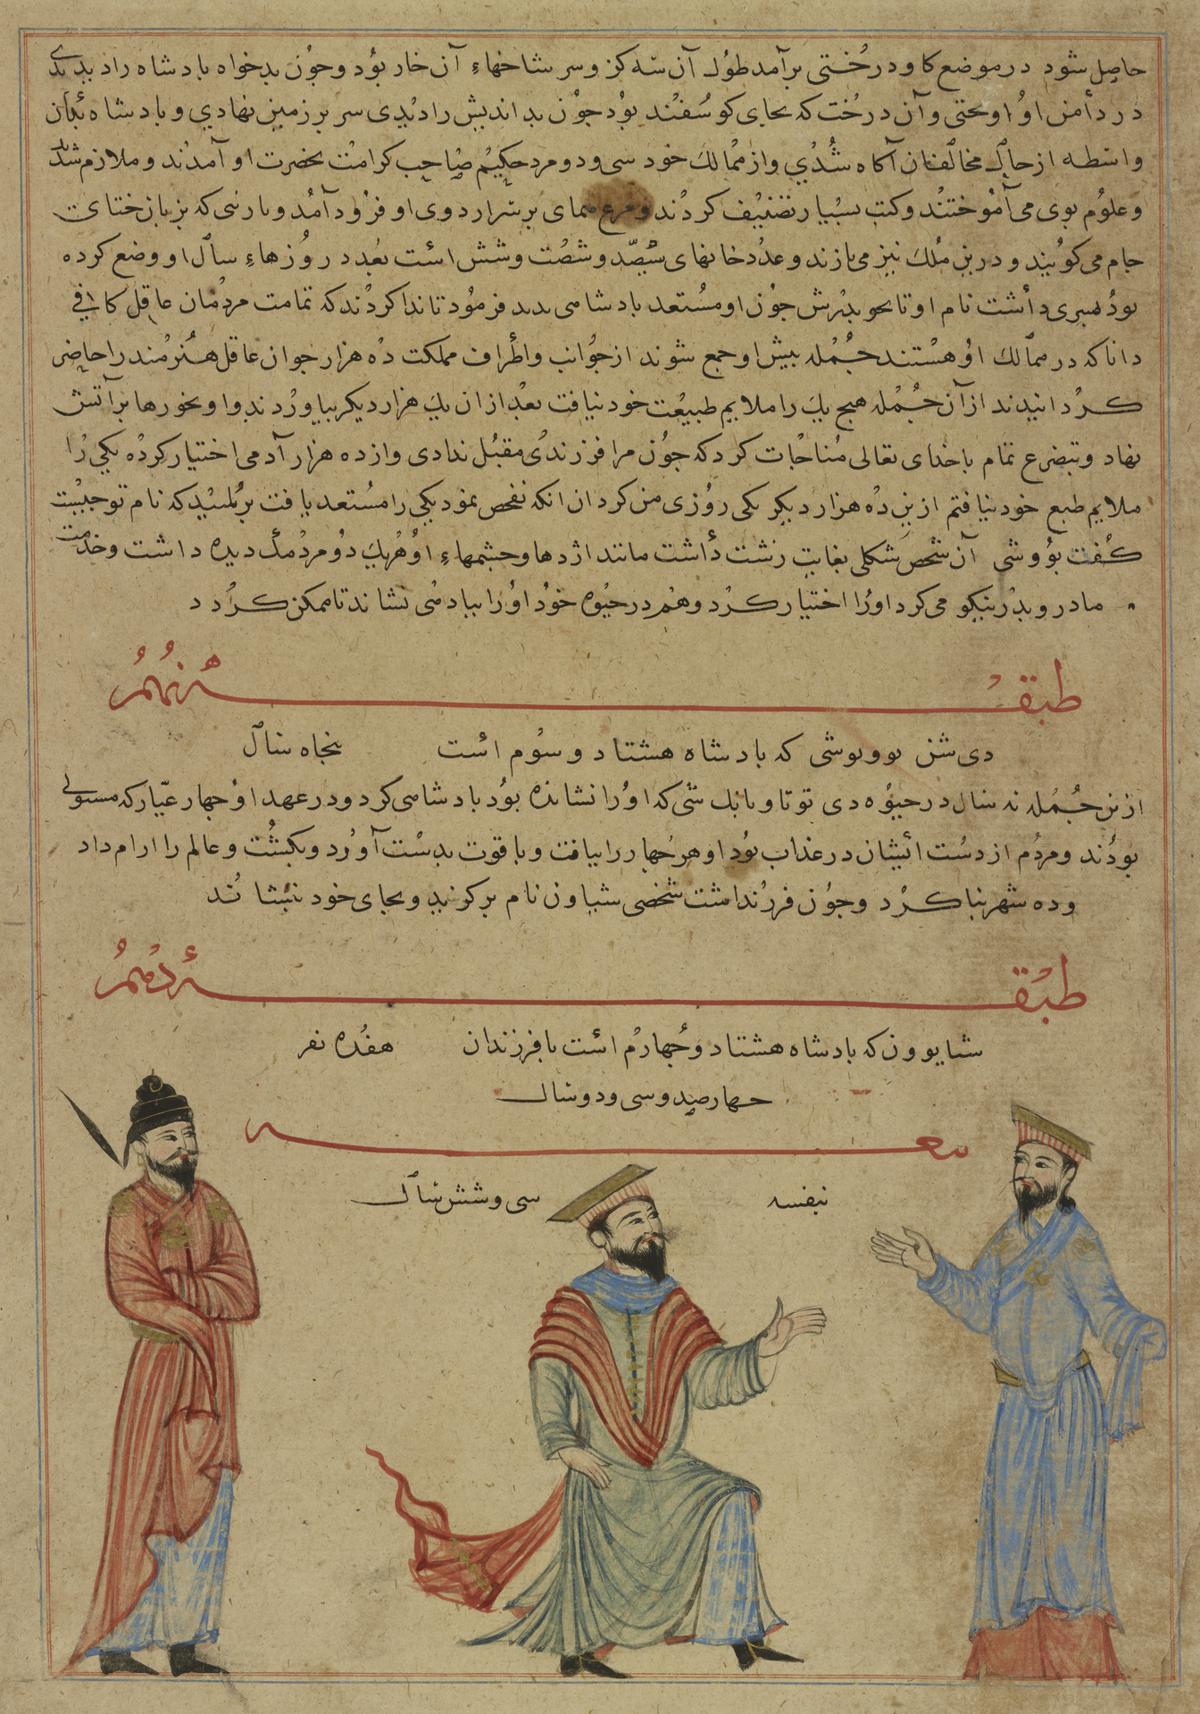 حاصل شود در موضع کا و درختی برآمد طول آن سه کز و سر شاخهاء آن خار بود و جون بدخواه بادشاه را دیدی
در دامن او اوختی و آن درخت که بجای کوسفند بود جون بد اندیش را دیدی سر بر زمین نهادی و بادشاه بدان
واسطه از حال مخالفان آکاه شدی و از ممالک خود سی و دو مرد حکیم صاحب کرامت بحضرت او آمدند و ملازم شدند
و علوم بوی می آموختند و کتب بسیار تصنیف کردند و مرغ همای بر سرار دوی او فرود آمد و بارسی که بزبان ختای
جام می کویند و درین ملک نیز می بازند و عدد خانهای سیصد و شصت و شش است بعدد روزهاء سال او وضع کرده
بود بسری داشت نام او تانجو بدرش جون او مستعد بادشاهی ندید فرمود تا ندا کردند که تمامت مردمان عاقل کافی
دانا که در ممالک او هستند جمله بیش او جمع شوند از جوانب و اطراف مملکت ده هزار جوان عاقل هنرمند را حاضر
کردانیدند از آن جمله هیج یک را ملایم طبیعت خود نیافت بعد از ان یک هزار دیکر بیاوردند و او بخورها بر آتش
نهاد و بتضرع تمام با خدای تعالی مناجات کرد که جون مرا فرزندی مقبل ندادی و از ده هزار آدمی اختیار کرده یکی را
ملایم طبع خود نیافتم ازین ده هزار دیکر یکی روزی من کردان انکه تفحص نمود یکی را مستعد یافت برسید که نام تو جیست
کفت بووشی آن شخص شکلی بغایت زشت داشت مانند اژدها و جشمهاء او هر یک دو مردمک دیده داشت و خدمت
مادر و بدر نیکو می کرد او را اختیار کرد و هم در حیوه خود او را ببادشاهی نشاند تا ممکن کردد
طبقـه نهم
دی شن یوویوشی که بادشاه هشتاد و سوم است بنجاه سال
ازین جمله نه سال در حیوه دی توتاو بانک شی که او را نشانده بود بادشاهی کرد و در عهد او جهار عیار که مستولی
بودند و مردم از دست ایشان در عذاب بود او هر جهار را بیافت و با قوت بدست آورد و بکشت و عالم را ارام داد
و ده شهر بنا کرد و جون فرزند داشت شخصی شیاون نام برکزید و بجای خود بنشاند
طبقـه دهم
شایوون که بادشاه هشتاد و جهارم است با فرزندان هفده نفر
جهارصد و سی و دو سال
بنفسه سی و شش سال